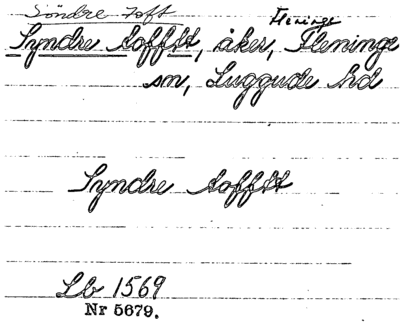 Söndre Toft
Fleninge
Syndre tofftt, åker, Fleninge
sn, Luggude hd
Syndre tofftt
Lb 1569
Nr 5679.